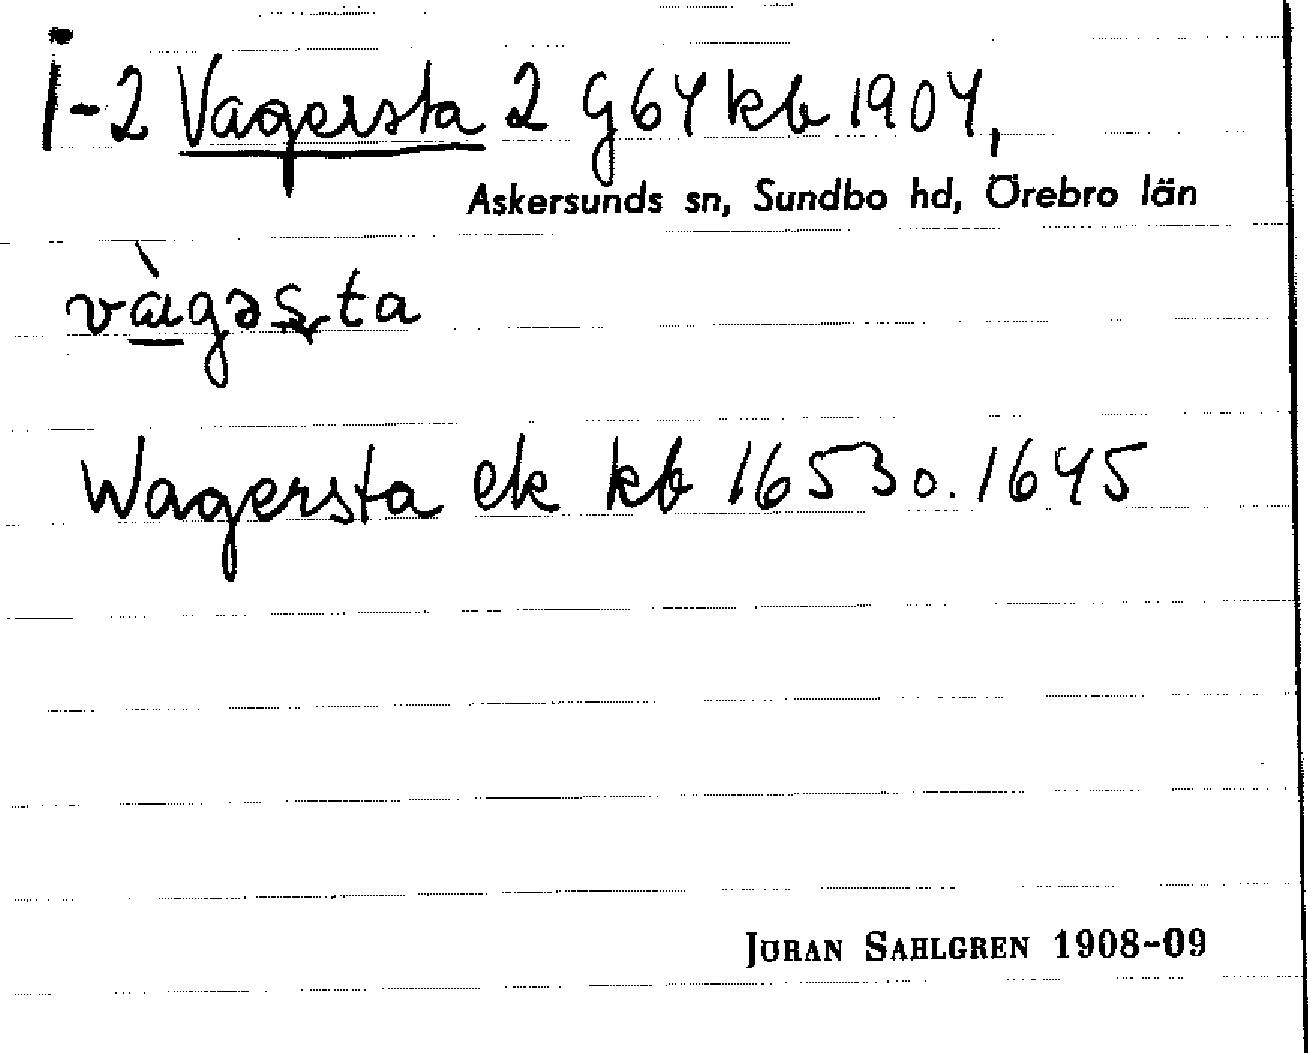 i-2 Vagersta 2 g 64 kb 1904,
Askersunds sn, Sundbo hd, Örebro län
vàgəs̩ta
Wagersta ek kb 1653 o. 1645
JÖRAN SAHLGREN 1908-09